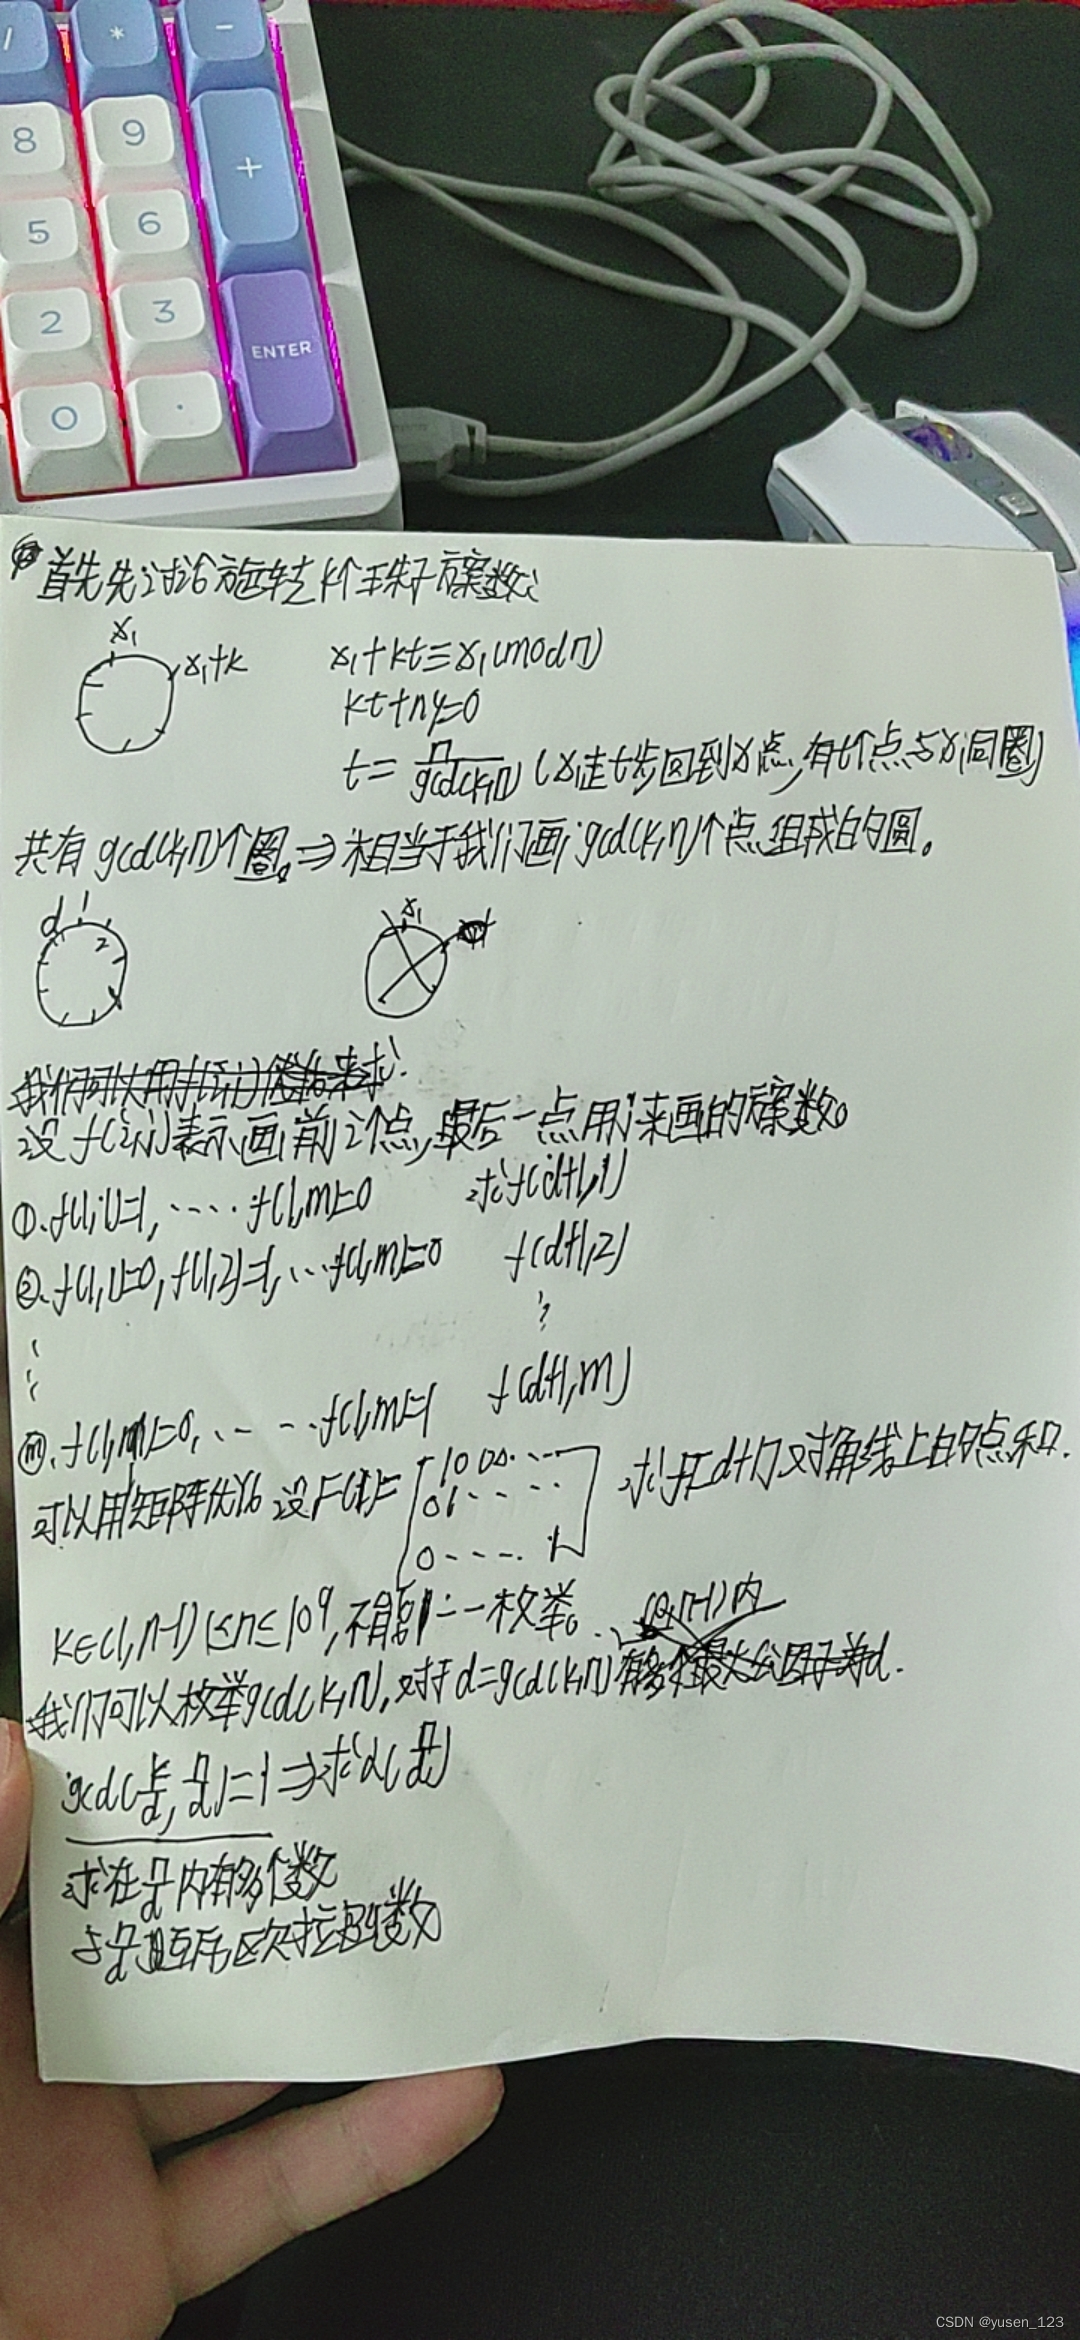 / * -
8 9 +
5 6
2 3 ENTER
0 .
首先先讨论旋转k个珠子方案数:
x₁
x₁+k
x₁+kt≡x₁(mod n)
kt+ny=0
t= n/gcd(k,n) (x₁走t步回到x₁点,有t个点与x₁同圈)
共有gcd(k,n)个圈。⇒相当于我们画gcd(k,n)个点组成的圆。
d 1 2
x₁
设f(i,j)表示画前i个点,最后一点用j来画的方案数。
①.f(1,1)=1,.....f(1,m)=0 求f(d+1,1)
②.f(1,1)=0,f(1,2)=1,...f(1,m)=0 f(d+1,2)
⋮ ⋮
ⓜ.f(1,1)=0,.....f(1,m)=1 f(d+1,m)
可以用矩阵优化 设F(1)= [1 0 0 0 ... 求F[d+1]对角线上的点和.
0 1 ....
0 .... 1]
k∈(1,n-1) 1≤n≤10⁹,不能一一枚举。
我们可以枚举gcd(k,n),对于d=gcd(k,n)
gcd(k/d, n/d)=1 ⇒求d(n/d)
求在n/d内有多个数
与n/d互质,欧拉函数
CSDN @yusen_123